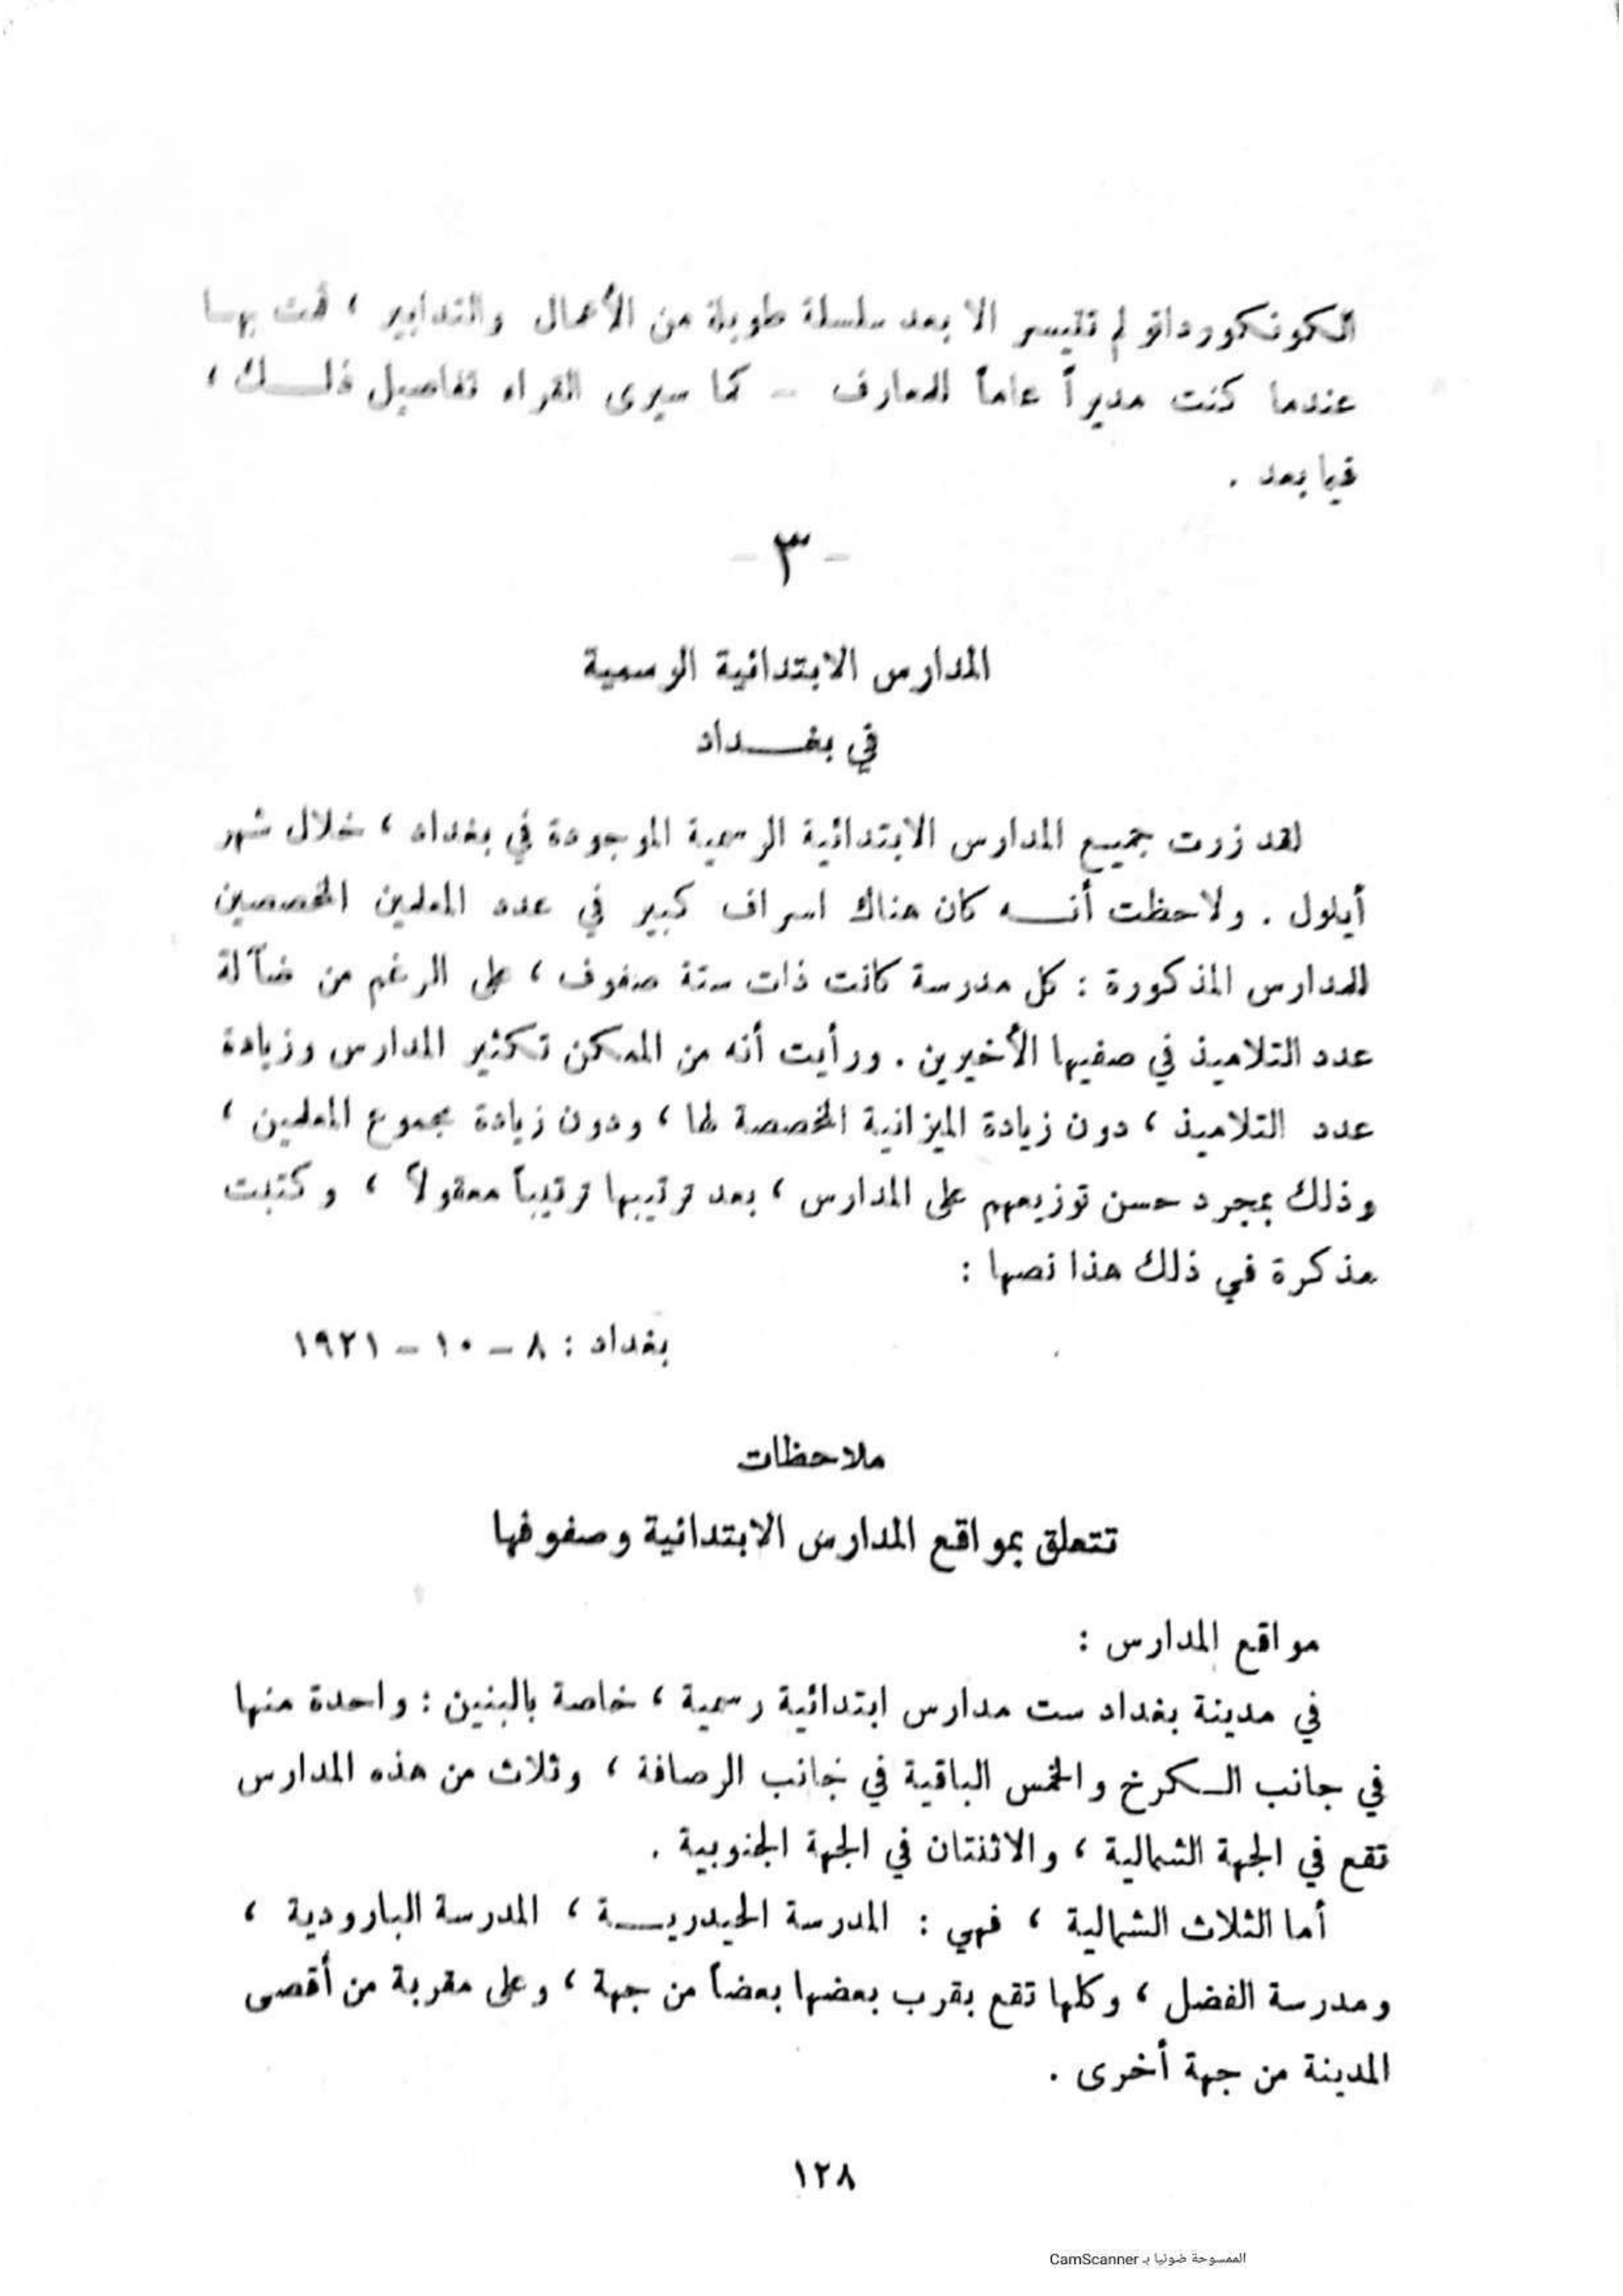 الكونكورداتو لم تتيسر الا بعد سلسلة طويلة من الأعمال والتدابير ، قمت بهـا
عندما كنت مديراً عاماً للمعارف – كما سيرى القراء تفاصيل ذلـــك ،
فيما بعد .
– ٣ –
المدارس الابتدائية الرسمية
في بغـــداد
لقد زرت جميـع المدارس الابتدائية الرسمية الموجودة في بغداد ، خلال شهر
أيلول . ولاحظت أنـــه كان هناك اسراف كبير في عدد المعلمين المخصصين
للمدارس المذكورة : كل مدرسة كانت ذات ستة صفوف ، على الرغم من ضآلة
عدد التلاميذ في صفيها الأخيرين . ورأيت أنه من الممكن تكثير المدارس وزيادة
عدد التلاميذ ، دون زيادة الميزانية المخصصة لها ، ودون زيادة مجموع المعلمين ،
وذلك بمجرد حسن توزيعهم على المدارس ، بعد ترتيبها ترتيباً معقولاً ، وكتبت
مذكرة في ذلك هذا نصها :
بغداد : ٨ – ١٠ – ١٩٢١
ملاحظات
تتعلق بمواقع المدارس الابتدائية وصفوفها
مواقع المدارس :
في مدينة بغداد ست مدارس ابتدائية رسمية ، خاصة بالبنين : واحدة منها
في جانب الـكرخ والخمس الباقية في جانب الرصافة ، وثلاث من هذه المدارس
تقع في الجهة الشمالية ، والاثنتان في الجهة الجنوبية .
أما الثلاث الشمالية ، فهي : المدرسة الحيدريـــة ، المدرسة البارودية ،
ومدرسة الفضل ، وكلها تقع بقرب بعضها بعضاً من جهة ، وعلى مقربة من أقصى
المدينة من جهة أخرى .
١٢٨
الممسوحة ضوئيا بـ CamScanner